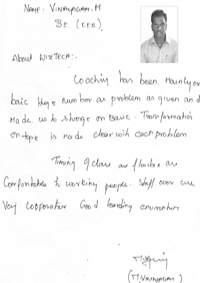 NAME: VINAYAGAM.M
BE (EEE)
About WIXTECH:-
Coaching has been Mainly on
basic Huge number as problem as given and
Made us to stronge on Basic. Transformation
en-tope is made clear with each problem
Timing of class are flexible as
Comfortable to working people. Staff over are
Very cooperative Good learding
(M.VINAYAGAM)